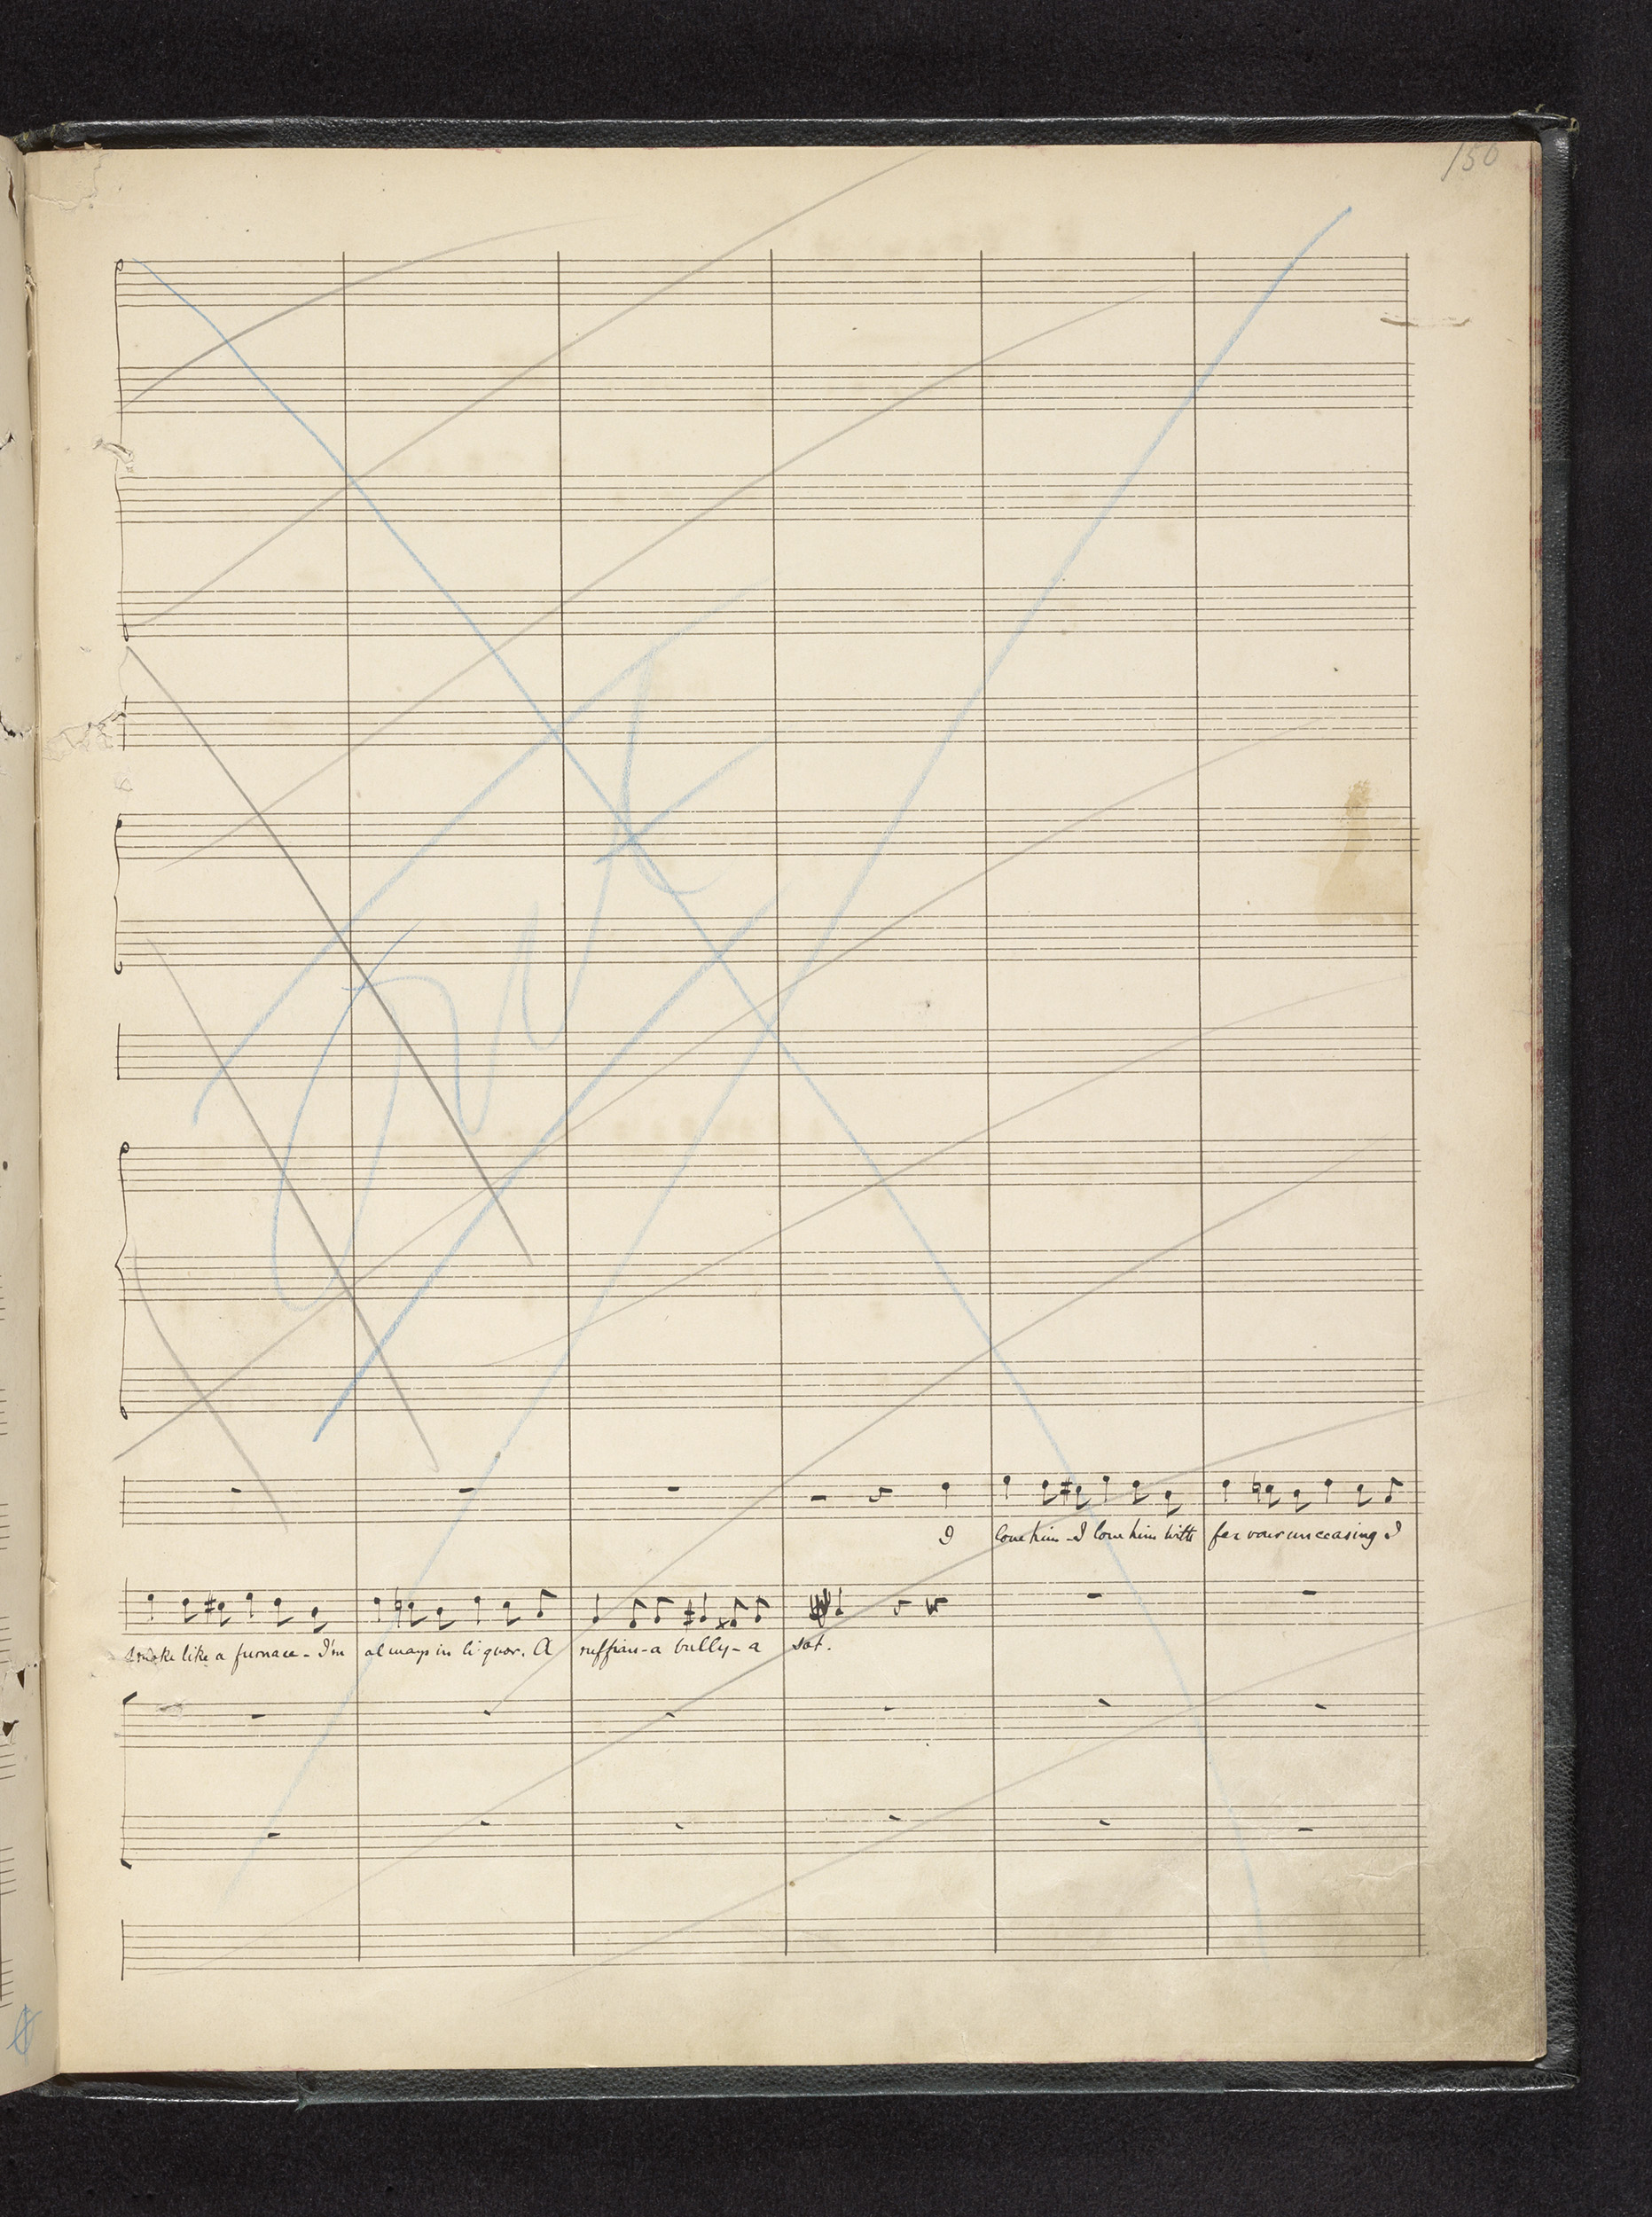 150
Cut
I love him - I love him with fervour unceasing I
smoke like a furnace - I'm always in liquor. A ruffian - a bully - a sot.